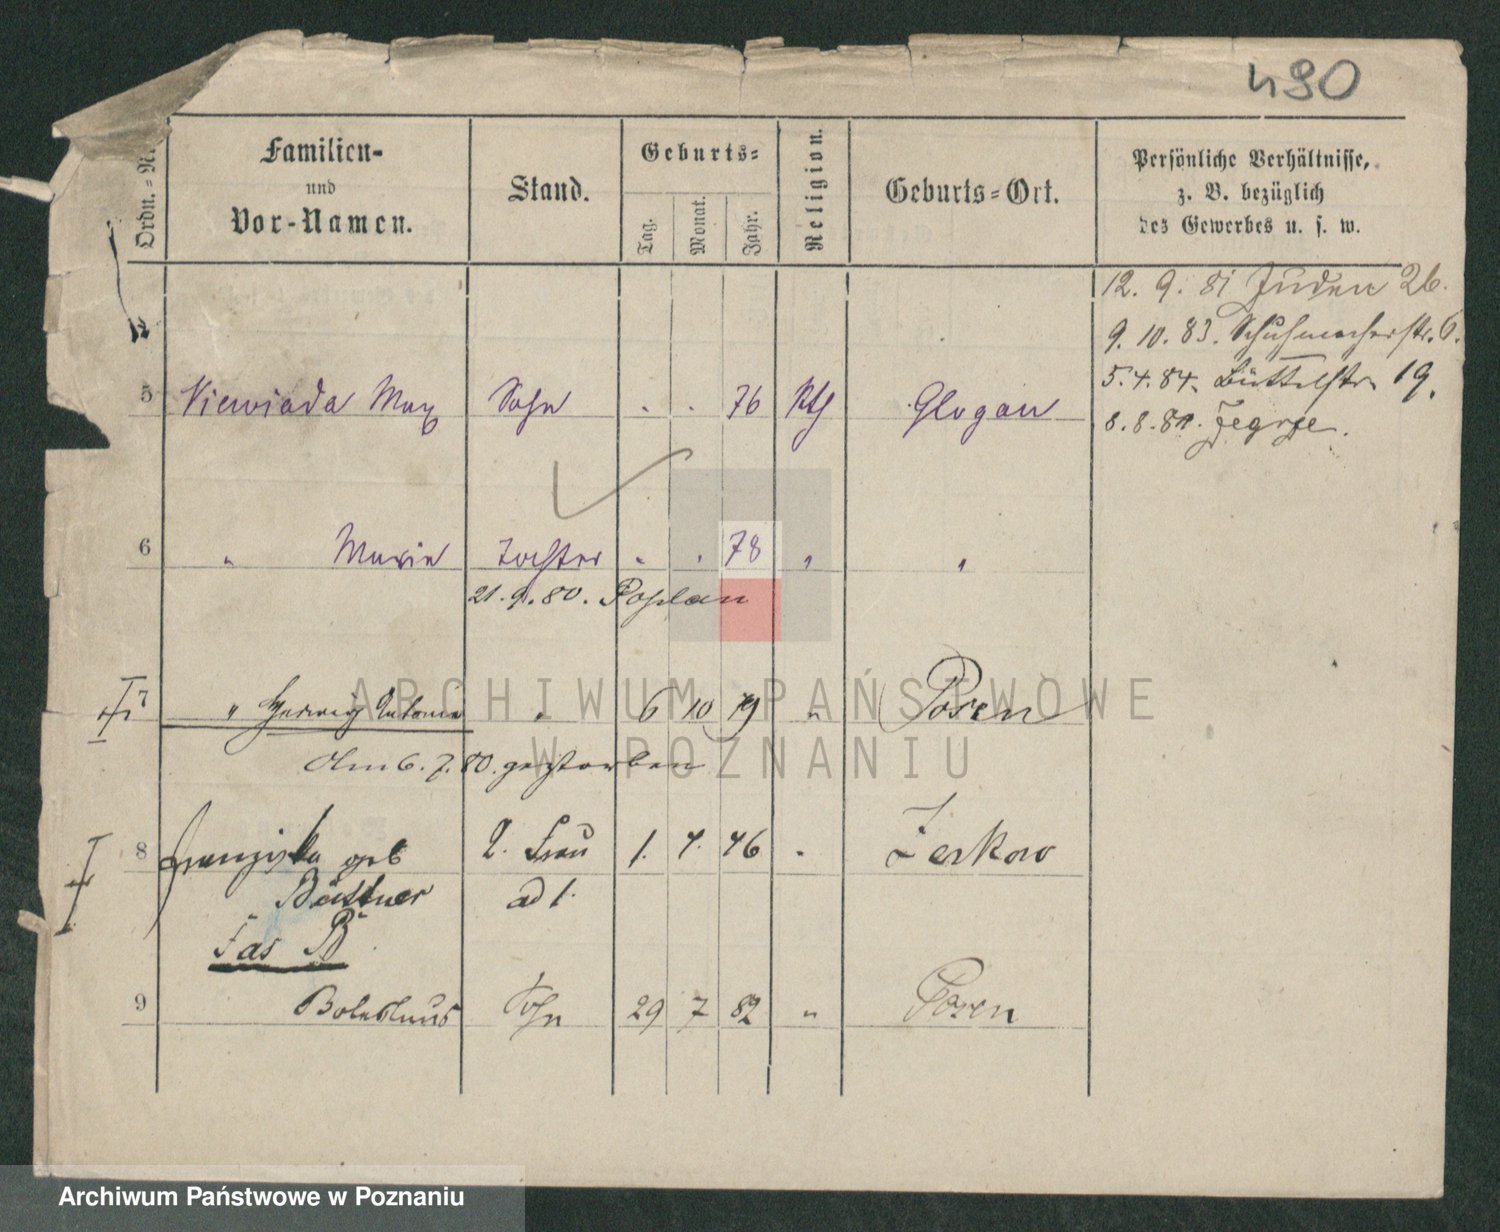 490
Ordn.-Nr.
Familien-
und
Vor-Namen.
Stand.
Geburts-
Tag.
Monat.
Jahr.
Religion.
Geburts-Ort.
Persönliche Verhältnisse,
z. B. bezüglich
des Gewerbes u. s. w.
12. 9. 81 Juden 26.
9. 10. 83. Schuhmacherstr. 6.
5. 4. 84. Büttelstr. 19.
8. 8. Zegrze.
5 Max Sohn . . 76 Kth Glogau
6 " Marie Tochter " . 78 " "
21. 9. 80.
7 " Hedwig Antonie " 6 10 79 " Posen
Am 6. 7. 80. gestorben
8 Franziska geb 2. Frau 1. 4. 46 " Zerkow
Büttner ad 1.
9 Boleslaus Sohn 29 7 82 " Posen
ARCHIWUM PAŃSTWOWE
W POZNANIU
Archiwum Państwowe w Poznaniu